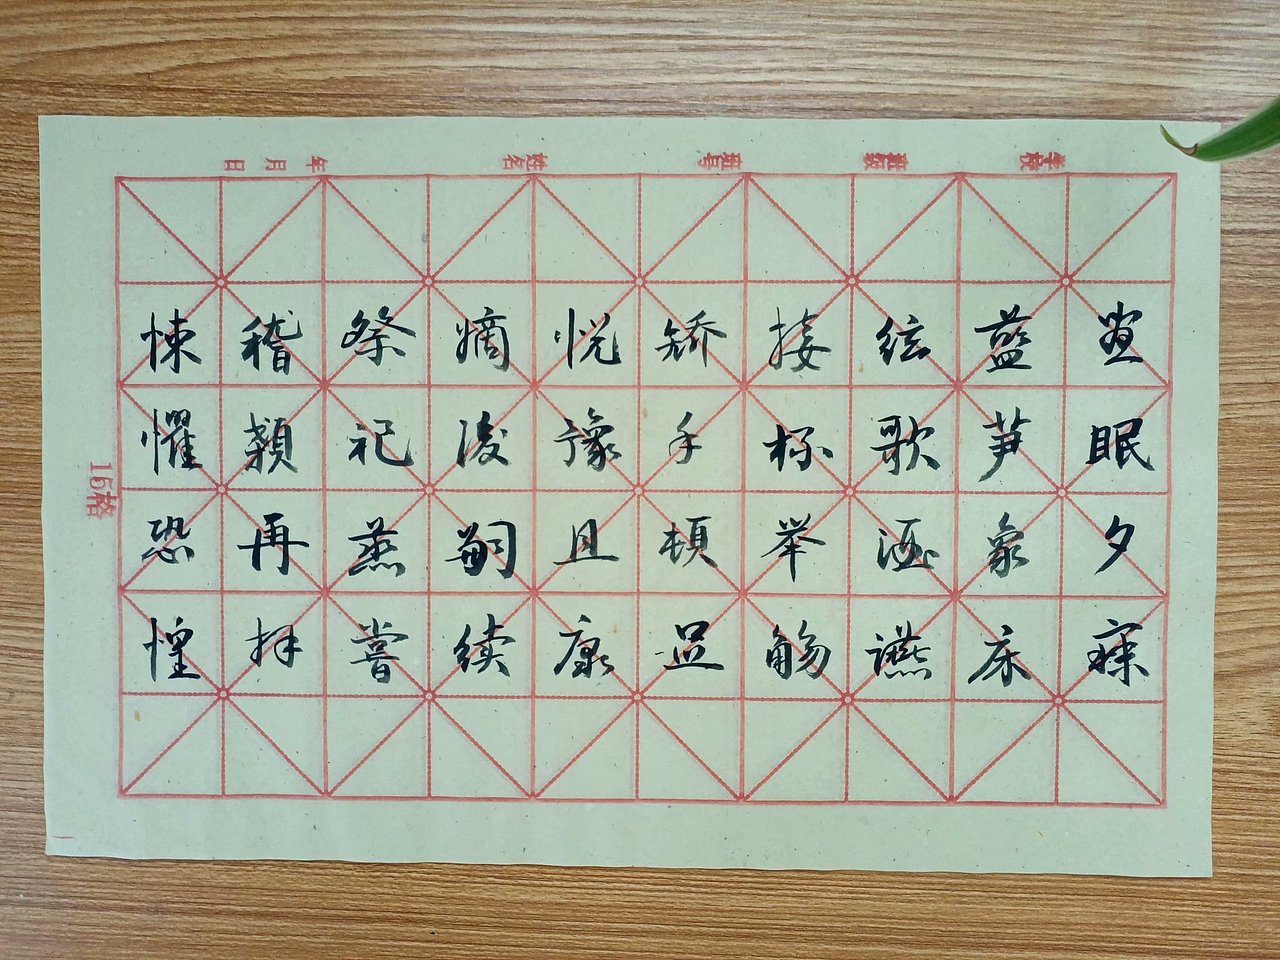 昼眠夕寐
蓝笋象床
弦歌酒讌
接杯举觞
矫手顿足
悦豫且康
嫡后嗣续
祭祀蒸尝
稽颡再拜
悚惧恐惶
学校
班级
姓名
年 月 日
15格